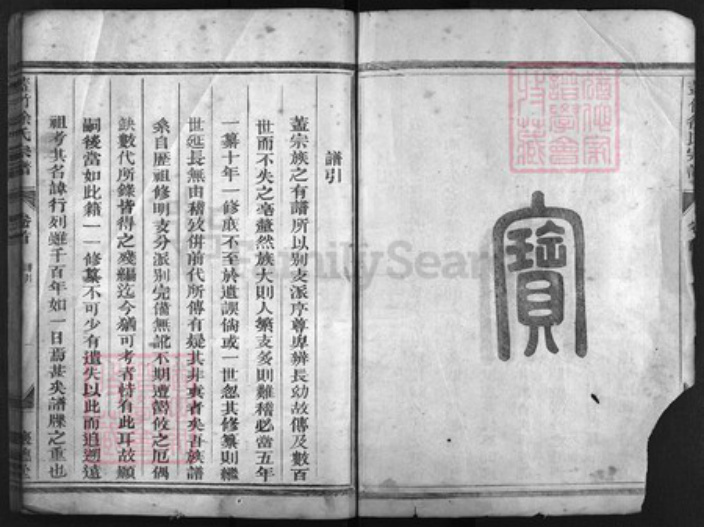 寶
譜引
蓋宗族之有譜所以別支派序尊卑辨長幼故傳及數百
世而不失之毫釐然族大則人繁支多則難稽必當五年
一纂十年一修庶不至於遺誤倘或一世忽其修纂則繼
世延長無由稽攷併前代所傳有疑其非真者矣吾族譜
系自歷祖修明支分派別完備無訛不期遭鬱攸之厄偶
缺數代所錄皆得之殘編迄今猶可考者恃有此耳故願
嗣後當如此籍一一修纂不可少有遺失以此而追遡遠
祖考其名諱行列雖千百年如一日焉甚矣譜牒之重也
徐氏宗譜
卷首
譜引
FamilySearch